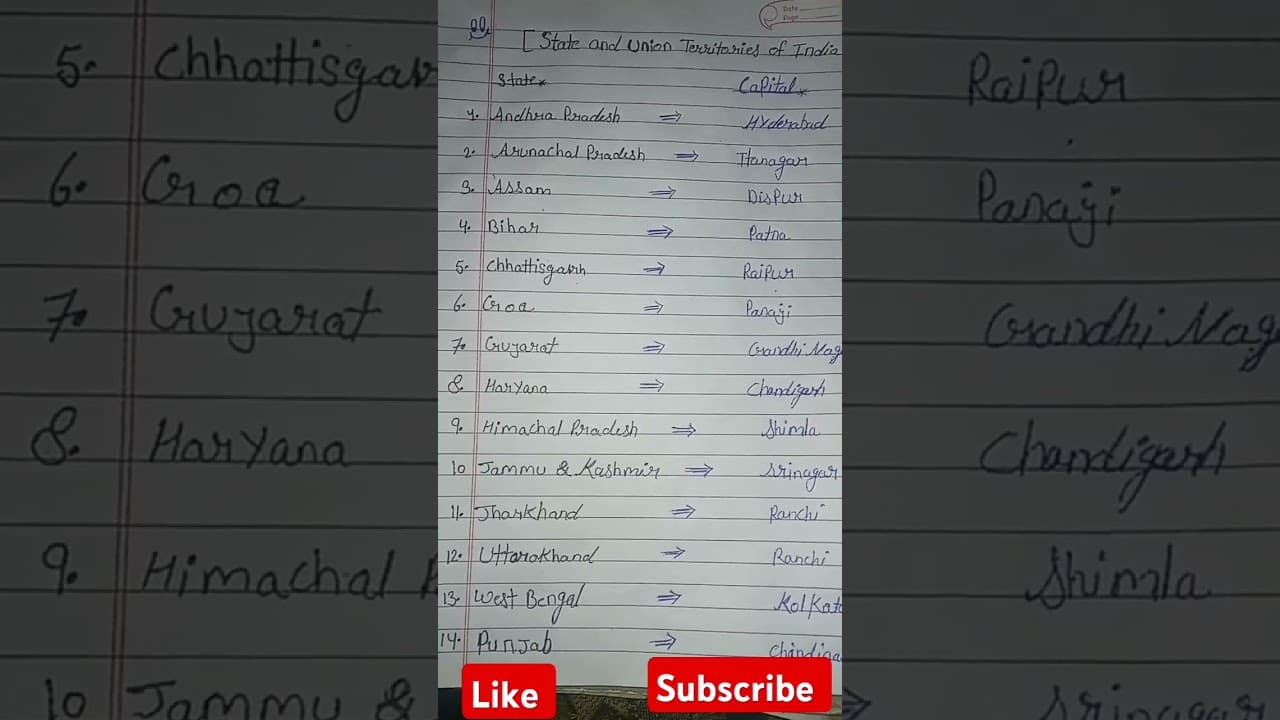 Date
Page
[ State and Union Territories of India
State Capital
1. Andhra Pradesh ⇒ Hyderabad
2. Arunachal Pradesh ⇒ Itanagar
3. Assam ⇒ Dispur
4. Bihar ⇒ Patna
5. Chhattisgarh ⇒ Raipur
6. Goa ⇒ Panaji
7. Gujarat ⇒ Gandhi Nag
8. Haryana ⇒ Chandigarh
9. Himachal Pradesh ⇒ Shimla
10 Jammu & Kashmir ⇒ Srinagar
11. Jharkhand ⇒ Ranchi
12. Uttarakhand ⇒ Ranchi
13. West Bengal ⇒ Kolkata
14. Punjab ⇒ Chandiga
Like Subscribe
5. Chhattisgar Raipur
6. Goa Panaji
7. Gujarat Gandhi Nag
8. Haryana Chandigarh
9. Himachal Shimla
10 Jammu & ⇒ Srinagar